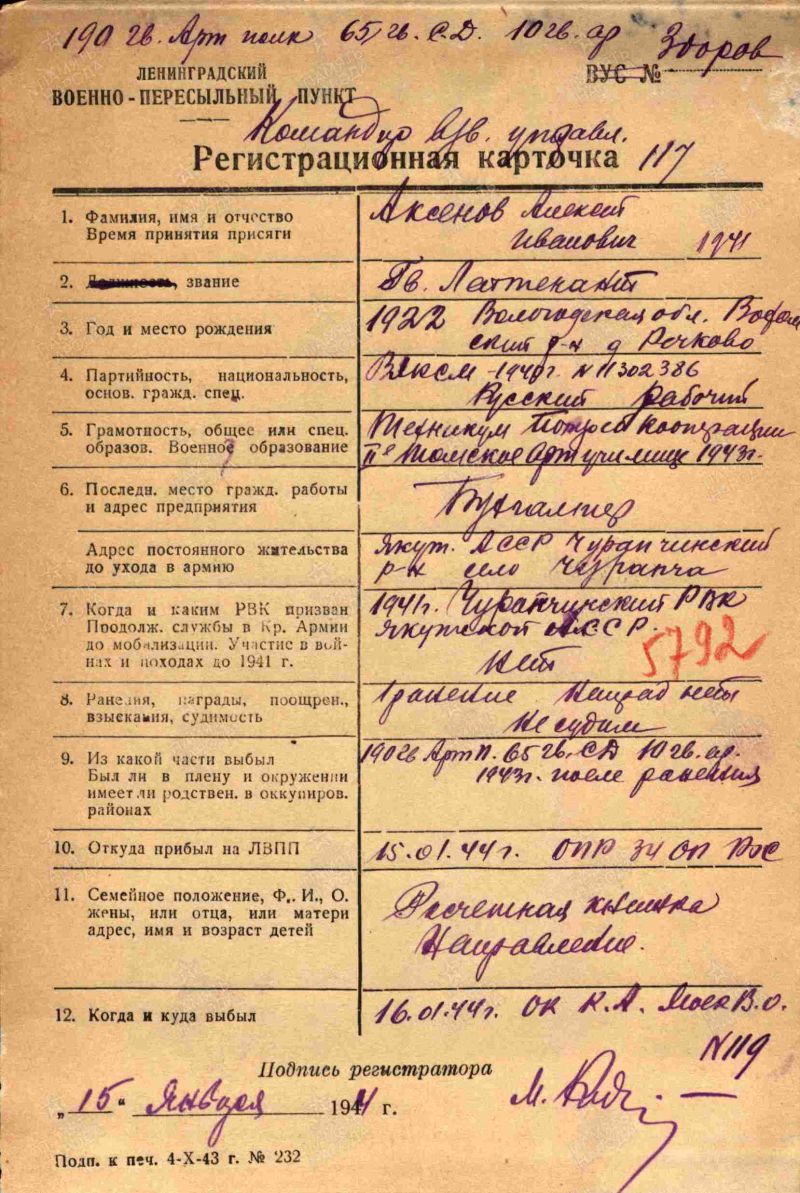 190 гв. Арт полк 65 гв. С.Д. 10 гв. ар
Здоров
ЛЕНИНГРАДСКИЙ
ВУС №
ВОЕННО-ПЕРЕСЫЛЬНЫЙ ПУНКТ
Командир взв. управл.
Регистрационная карточка 117
1. Фамилия, имя и отчество
Время принятия присяги
Аксенов Алексей
Иванович 1941
2. Должность, звание
Гв. Лейтенант
3. Год и место рождения
1922 Вологодская обл.
ский р-н д Рочково
4. Партийность, национальность,
основ. гражд. спец.
ВЛКСМ - 1940г. N 11302386
Русский рабочий
5. Грамотность, общее или спец.
образов. Военное образование
Техникум Потреб кооперации
IIе Томское Арт училище 1943г.
6. Последн. место гражд. работы
и адрес предприятия
Бухгалтер
Адрес постоянного жительства
до ухода в армию
Якут. АССР Чурапчинский
р-н село Чурапча
7. Когда и каким РВК призван
Продолж. службы в Кр. Армии
до мобилизации. Участие в вой-
нах и походах до 1941 г.
1941г. Чурапчинский РВК
Якутской АССР.
Нет
5792
8. Ранения, награды, поощрен.,
взыскания, судимость
1 ранение Наград нет
Не судим
9. Из какой части выбыл
Был ли в плену и окружении
имеет ли родствен. в оккупиров.
районах
190 гв Арт п. 65 гв. СД 10 гв. ар.
1943г. после ранения
10. Откуда прибыл на ЛВПП
15.01.44г. ОПР 34 ОП
11. Семейное положение, Ф., И., О.
жены, или отца, или матери
адрес, имя и возраст детей
Расчетная книжка
Направление.
12. Когда и куда выбыл
16.01.44г. ОК К.А. Моск В.о.
N 119
Подпись регистратора
„15" Января 1944 г.
Подп. к печ. 4-X-43 г. № 232